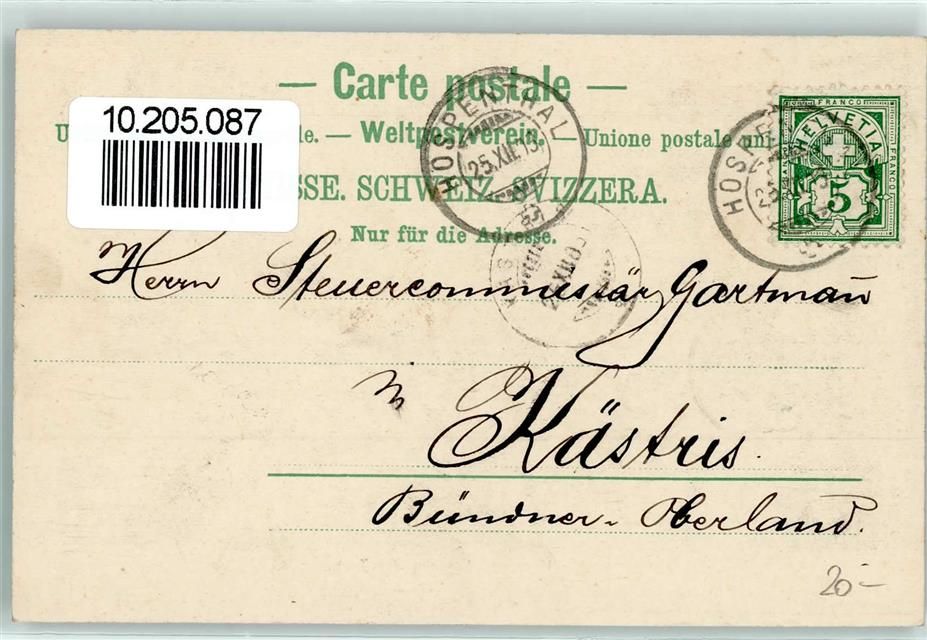 — Carte postale —
10.205.087
U le. — Weltpostverein. — Unione postale uni
SSE. SCHWEIZ. SVIZZERA.
Nur für die Adresse.
HOSPENTHAL
25.XII.
HOSPE
FRANCO
HELVETIA
FRANCO
5
Herrn Steuercommissär Gartmann
in Kästris.
Bündner-Oberland.
20.-